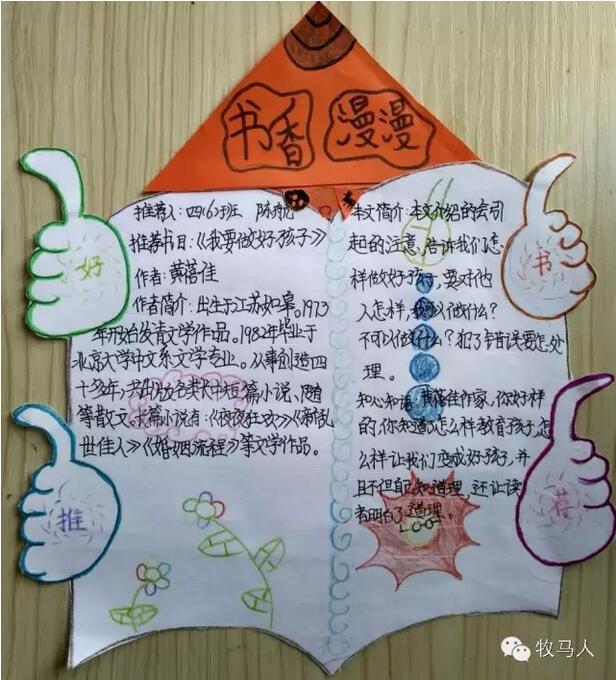 书香 漫漫
好
书
推
荐
推荐人：四(6)班 陈航
推荐书目：《我要做好孩子》
作者：黄蓓佳
作者简介：出生于江苏如皋。1973
年开始发表文学作品。1982年毕业于
北京大学中文系文学专业。从事创造四
十多年，共出版各类长中短篇小说、随
等散文。长篇小说者：《夜夜狂欢》《新乱
世佳人》《婚姻流程》等文学作品。
本文简介：本文介绍的会引
起的注意，告诉我们怎
样做好孩子，要对他
人怎样，我可以做什么？
不可以做什么？犯了错误要怎处
理。
知心知语：黄蓓佳作家，你好样
的，你知道了怎么样教育孩子，怎
么样让我们变成好孩子，并
且不但自己知道理，还让读
者明白了道理。
牧马人